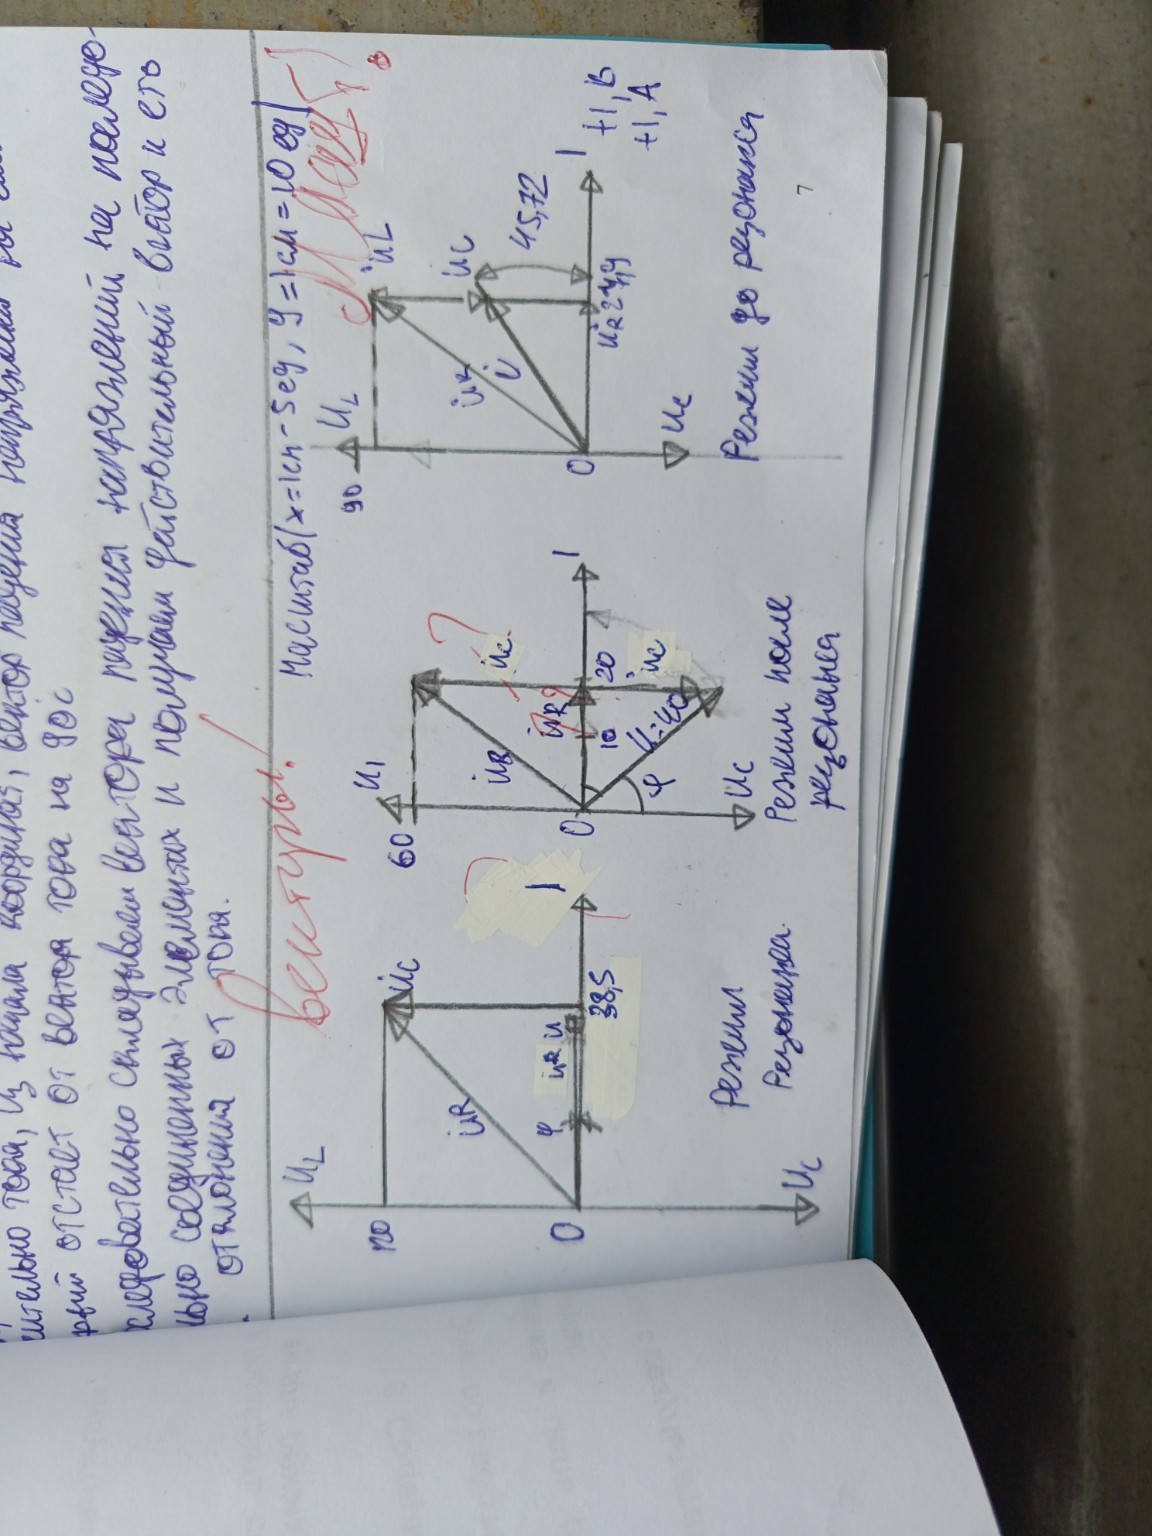 ительно тока, из начала координат, вектор падения напряжения
рый отстаёт от вектора тока на 90с
следовательно складываем вектора падения напряжений на последо-
льно соединенных элементах и получаем действительный вектор и его
отклонения от тока.
векторы!
Масштаб (x=1см-5ед, y=1см=10ед)
U_L
120
U̇c
U̇R
φ
U̇R
U̇
38,5
I
0
Uc
Режим
Резонанса
U1
60
U̇R
U̇c
?
?
U̇R
10
20
I
U̇c
U=40
φ
0
Uc
Режим после
резонанса
U_L
90
U̇L
U̇c
U̇R
U̇
45,72
U̇R
I
+1, В
+1, А
0
Uc
Режим до резонанса